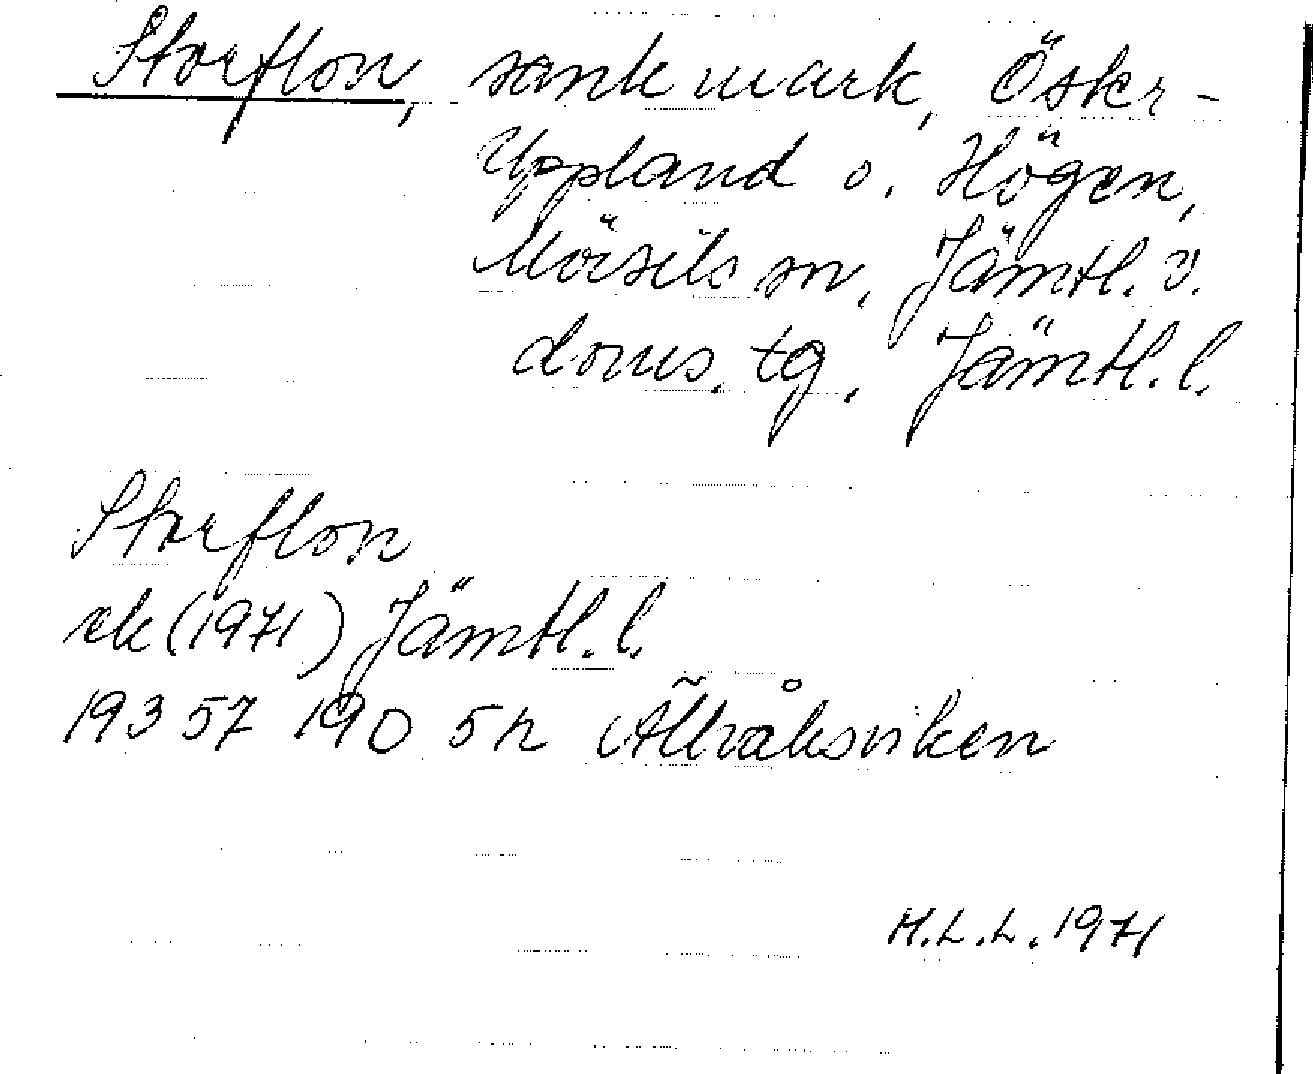 Storflon, sank mark, Öster-
Uppland o. Högen,
Mörsils sn, Jämtl. v.
doms. tg. Jämtl. l.
Storflon
ek (1971) Jämtl. l.
193 57 190 5h
H.L.L. 1971